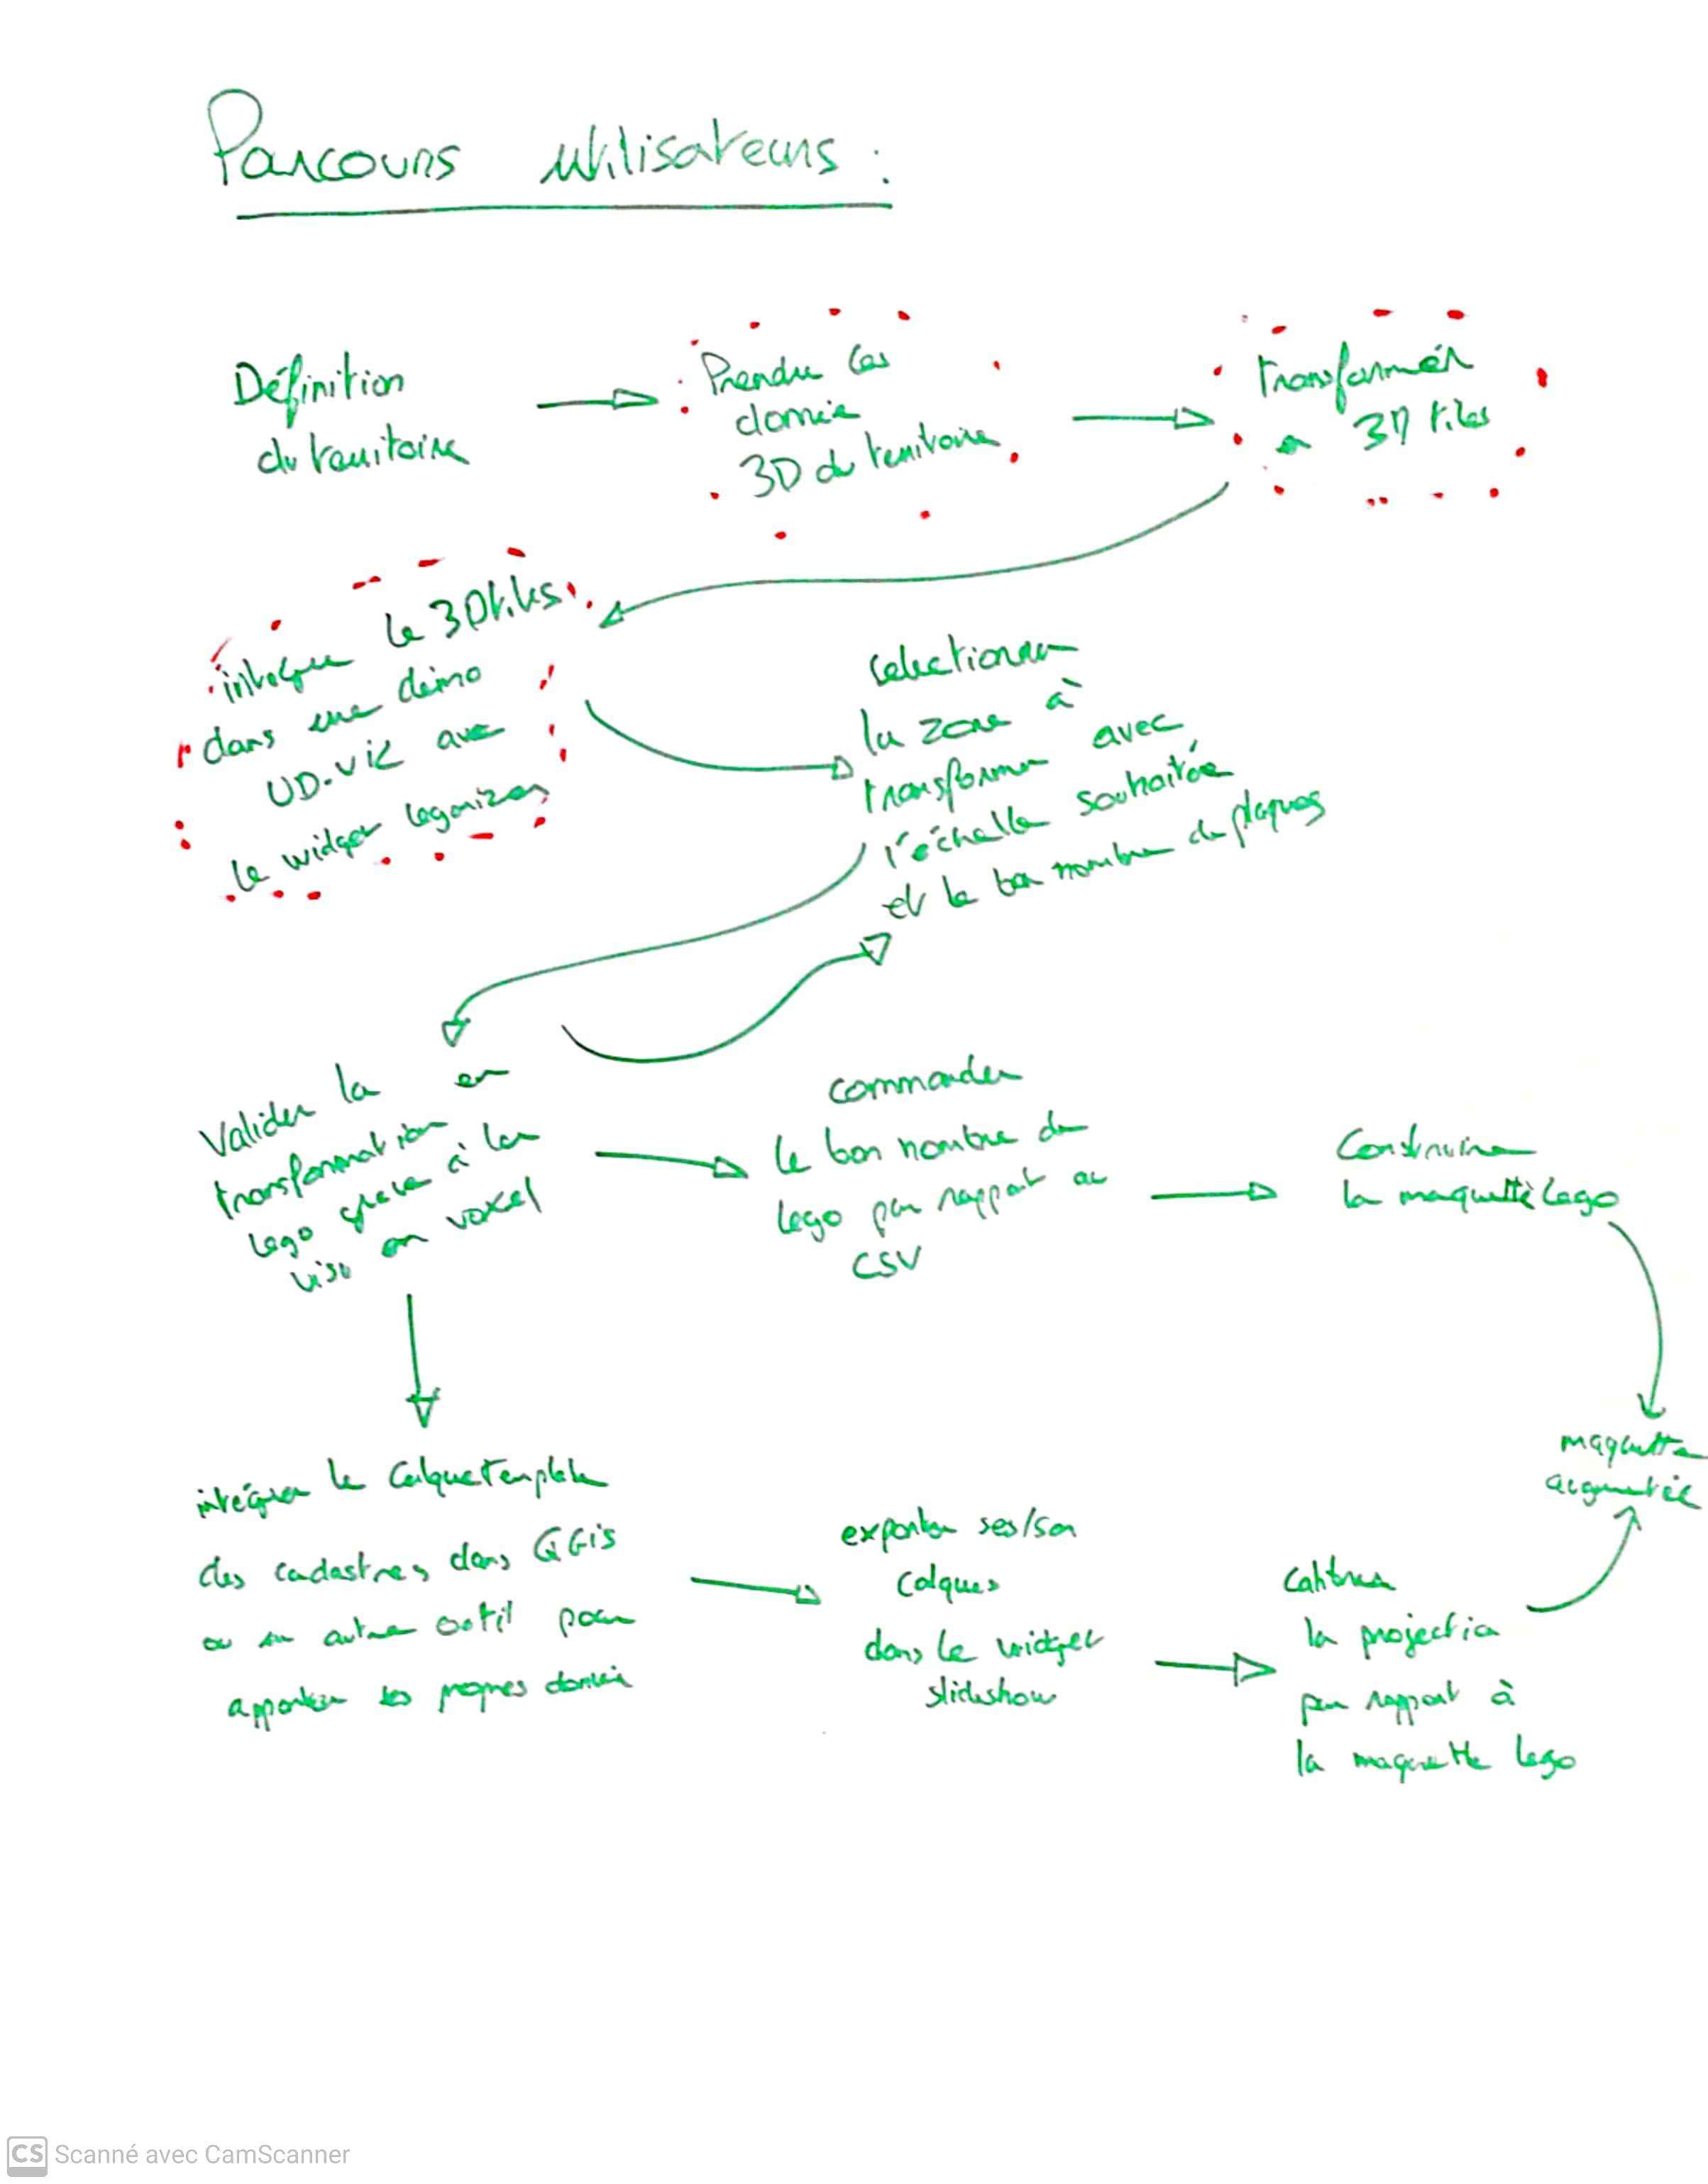 Parcours utilisateurs :
Définition
du territoire
Prendre les
donnée
3D du territoire
transformer
en 3D tiles
intégrer le 3Dtiles
dans une démo
UD-Viz avec
le widget legonizer
selectionner
la zone à
transformer avec
l'échelle souhaitée
et le bon nombre de plaques
Valider la
transformation en
lego grace à la
visu en voxel
commander
le bon nombre de
lego par rapport au
CSV
Construire
la maquette Lego
maquette
augmentée
intégrer le Calque template
des cadastres dans QGis
ou un autre outil pour
apporter ses propres donnée
exporter ses/son
calques
dans le widget
slideshow
Calibrer
la projection
par rapport à
la maquette lego
CS Scanné avec CamScanner